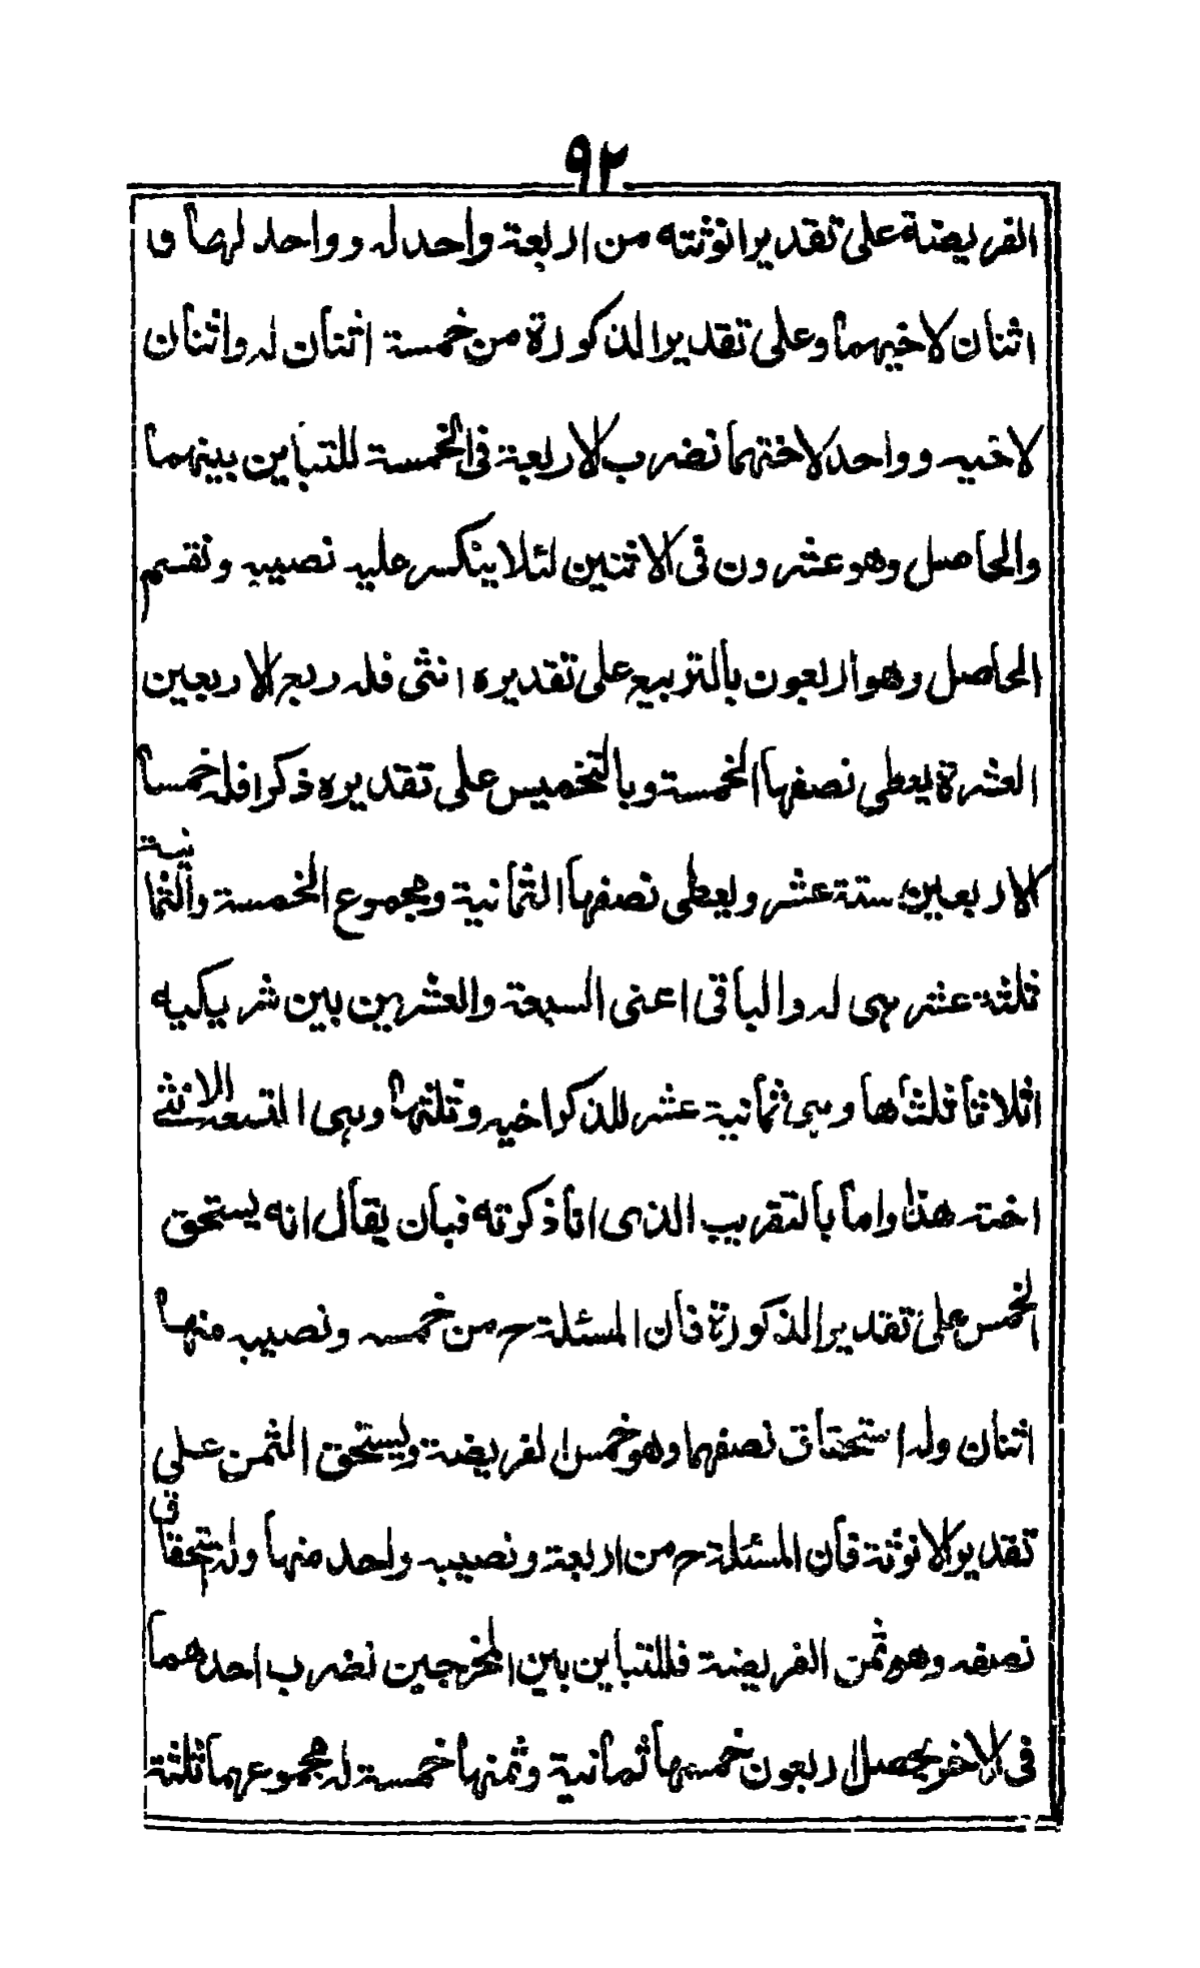 ٩٢
الفريضة على تقدير انوثته من اربعة واحد له وواحد لها و
اثنان لاخيهما وعلى تقدير الذكورة من خمسة اثنان له واثنان
لاخيه وواحد لاختهما نضرب الاربعة فى الخمسة للتباين بينهما
والحاصل وهو عشرون فى الاثنين لئلا ينكسر عليه نصيبه ونقسم
الحاصل وهو اربعون بالتربيع على تقديره انثى فله ربع الاربعين
العشرة يعطى نصفها الخمسة وبالتخميس على تقديره ذكرا فله خمسا
الاربعين ستة عشر ويعطى نصفها الثمانية ومجموع الخمسة والثمانية
ثلثة عشر هى له والباقى اعنى السبعة والعشرين بين شريكيه
اثلاثا ثلثاها وهى ثمانية عشر للذكر اخيه وثلثها وهى التسعة للانثى
اخته هذا واما بالتقريب الذى انا ذكرته فبان يقال انه يستحق
الخمس على تقدير الذكورة فان المسئلة ح من خمسه ونصيبه منها
اثنان وله استحقاق نصفهما وهو خمس الفريضة ويستحق الثمن على
تقدير الانوثة فان المسئلة ح من اربعة ونصيبه واحد منها وله استحقاق
نصفه وهو ثمن الفريضة فللتباين بين المخرجين نضرب احدهما
فى الاخر يحصل اربعون خمسها ثمانية وثمنها خمسة له مجموعهما ثلثة